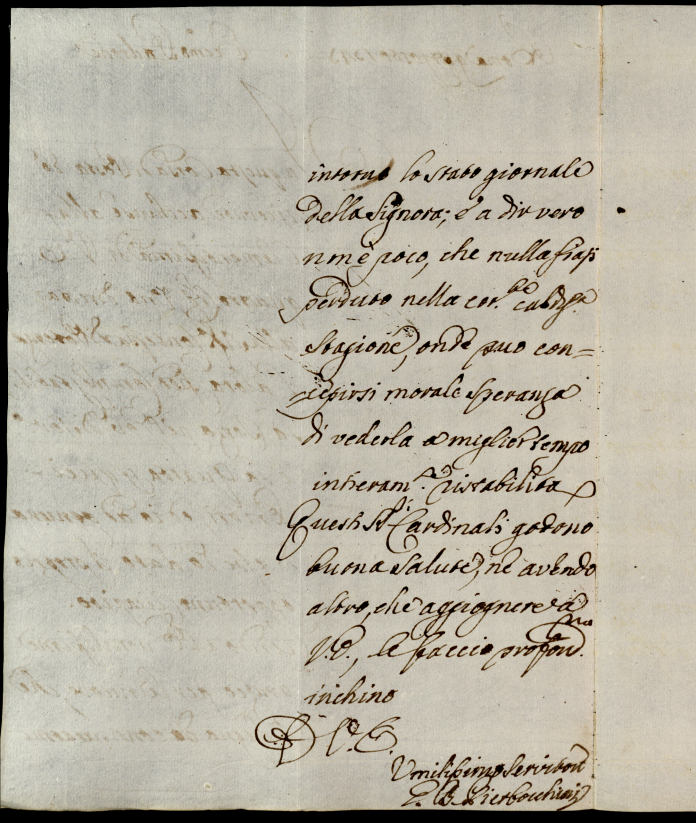 intorno lo stato giornale
della Signora; e a dir vero
non è poco, che nulla siasi
perduto nella cor.te calda
Stagione, onde può con=
cepirsi morale speranza
di vederla a miglior tempo
intieram.te ristabilita
Questi SS.ri Cardinali godono
buona salute, nè avendo
altro, che aggiognere à
V.E., le faccio profond.mo
inchino
D V.E.
Umilissimo Servitore